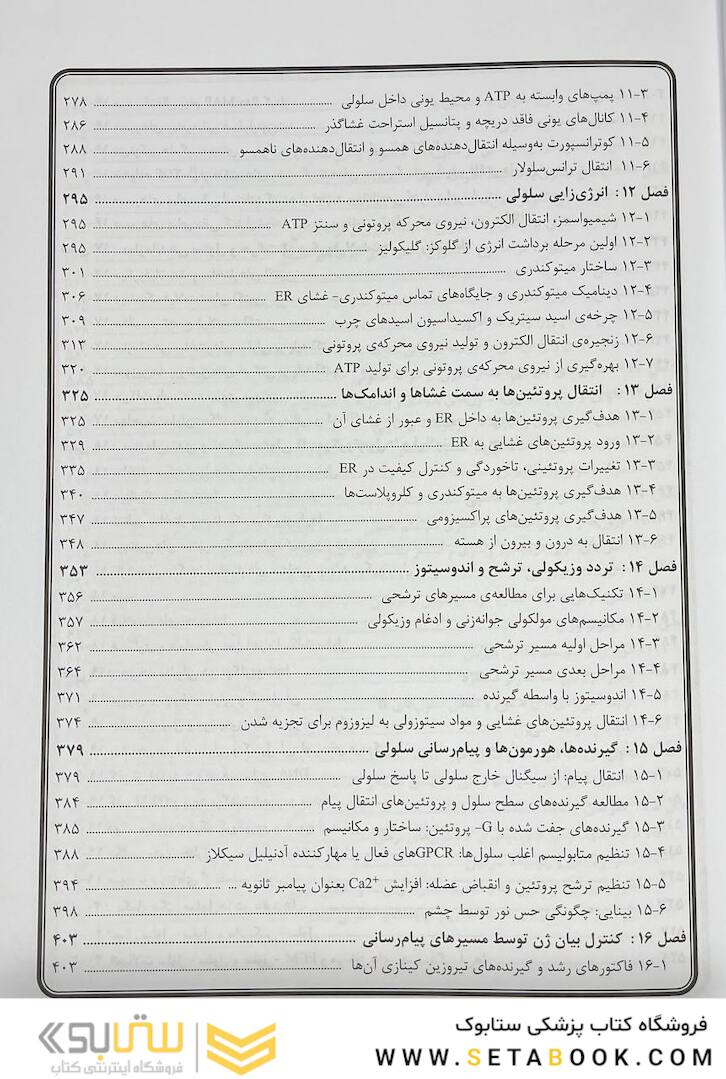 ۱۱-۳ پمپ‌های وابسته به ATP و محیط یونی داخل سلولی ۲۷۸
۱۱-۴ کانال‌های یونی فاقد دریچه و پتانسیل استراحت غشاگذر ۲۸۶
۱۱-۵ کوترانسپورت به‌وسیله انتقال‌دهنده‌های همسو و انتقال‌دهنده‌های ناهمسو ۲۸۸
۱۱-۶ انتقال ترانس‌سلولار ۲۹۱
فصل ۱۲: انرژی‌زایی سلولی ۲۹۵
۱۲-۱ شیمیواسمز، انتقال الکترون، نیروی محرکه پروتونی و سنتز ATP ۲۹۵
۱۲-۲ اولین مرحله برداشت انرژی از گلوکز: گلیکولیز ۲۹۵
۱۲-۳ ساختار میتوکندری ۳۰۱
۱۲-۴ دینامیک میتوکندری و جایگاه‌های تماس میتوکندری- غشای ER ۳۰۶
۱۲-۵ چرخه‌ی اسید سیتریک و اکسیداسیون اسیدهای چرب ۳۰۹
۱۲-۶ زنجیره‌ی انتقال الکترون و تولید نیروی محرکه‌ی پروتونی ۳۱۳
۱۲-۷ بهره‌گیری از نیروی محرکه‌ی پروتونی برای تولید ATP ۳۲۰
فصل ۱۳: انتقال پروتئین‌ها به سمت غشاها و اندامک‌ها ۳۲۵
۱۳-۱ هدف‌گیری پروتئین‌ها به داخل ER و عبور از غشای آن ۳۲۵
۱۳-۲ ورود پروتئین‌های غشایی به ER ۳۲۹
۱۳-۳ تغییرات پروتئینی، تاخوردگی و کنترل کیفیت در ER ۳۳۵
۱۳-۴ هدف‌گیری پروتئین‌ها به میتوکندری و کلروپلاست‌ها ۳۴۰
۱۳-۵ هدف‌گیری پروتئین‌های پراکسیزومی ۳۴۷
۱۳-۶ انتقال به درون و بیرون از هسته ۳۴۸
فصل ۱۴: تردد وزیکولی، ترشح و اندوسیتوز ۳۵۳
۱۴-۱ تکنیک‌هایی برای مطالعه‌ی مسیرهای ترشحی ۳۵۶
۱۴-۲ مکانیسم‌های مولکولی جوانه‌زنی و ادغام وزیکولی ۳۵۷
۱۴-۳ مراحل اولیه مسیر ترشحی ۳۶۲
۱۴-۴ مراحل بعدی مسیر ترشحی ۳۶۴
۱۴-۵ اندوسیتوز با واسطه گیرنده ۳۷۱
۱۴-۶ انتقال پروتئین‌های غشایی و مواد سیتوزولی به لیزوزوم برای تجزیه شدن ۳۷۴
فصل ۱۵: گیرنده‌ها، هورمون‌ها و پیام‌رسانی سلولی ۳۷۹
۱۵-۱ انتقال پیام: از سیگنال خارج سلولی تا پاسخ سلولی ۳۷۹
۱۵-۲ مطالعه گیرنده‌های سطح سلول و پروتئین‌های انتقال پیام ۳۸۴
۱۵-۳ گیرنده‌های جفت شده با G- پروتئین: ساختار و مکانیسم ۳۸۵
۱۵-۴ تنظیم متابولیسم اغلب سلول‌ها: GPCRهای فعال یا مهارکننده آدنیلیل سیکلاز ۳۸۸
۱۵-۵ تنظیم ترشح پروتئین و انقباض عضله: افزایش Ca2+ بعنوان پیامبر ثانویه ۳۹۴
۱۵-۶ بینایی: چگونگی حس نور توسط چشم ۳۹۸
فصل ۱۶: کنترل بیان ژن توسط مسیرهای پیام‌رسانی ۴۰۳
۱۶-۱ فاکتورهای رشد و گیرنده‌های تیروزین کینازی آن‌ها ۴۰۳
فروشگاه کتاب پزشکی ستابوک
WWW.SETABOOK.COM
ستابوک
فروشگاه اینترنتی کتاب